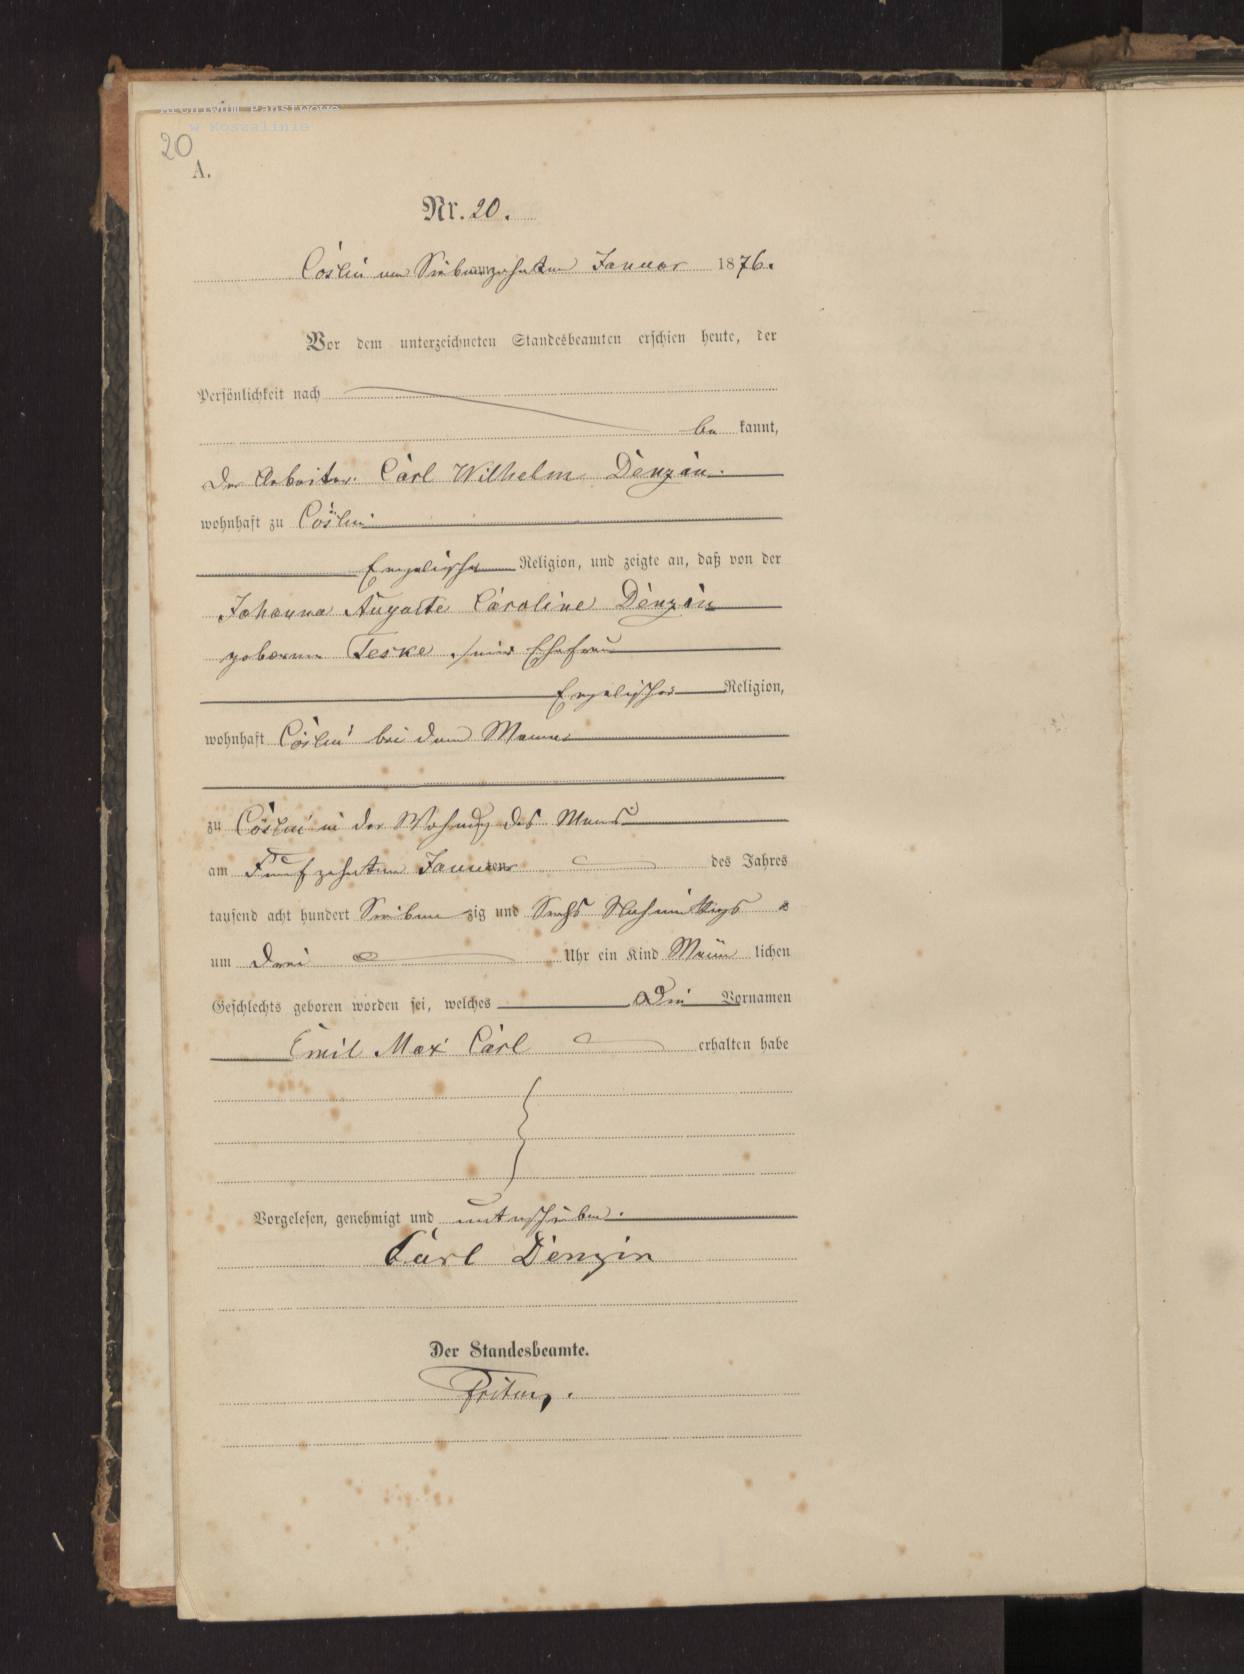 Archiwum Państwowe
w Koszalinie
20
A.
Nr. 20.
Cöslin am Siebenzehnten Januar 1876.
Vor dem unterzeichneten Standesbeamten erschien heute, der
Persönlichkeit nach
be kannt,
der Arbeiter Carl Wilhelm Denzin
wohnhaft zu Cöslin
Religion, und zeigte an, daß von der
Johanna Auguste Caroline Denzin
geborene Teske, seine Ehefrau
Religion,
wohnhaft Cöslin bei dem Manne
zu Cöslin in der Wohnung des Manns
am Fünfzehnten Januar des Jahres
tausend acht hundert Sieben zig und Sechs Nachmittags
um Drei Uhr ein Kind Männ lichen
Geschlechts geboren worden sei, welches Die Vornamen
Emil Max Carl erhalten habe
Vorgelesen, genehmigt und unterschrieben.
Carl Denzin
Der Standesbeamte.